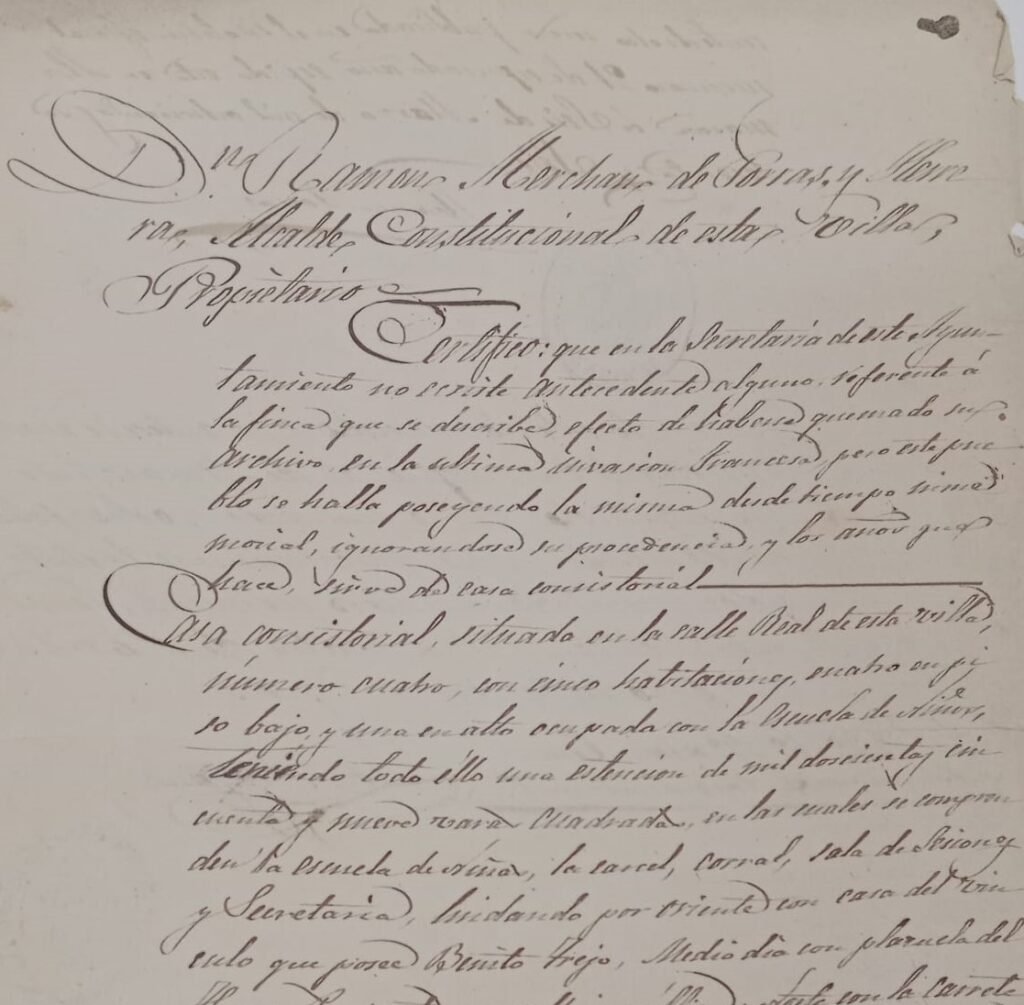 Dn. Ramon Merchan de Porras, y Herre
ra, Alcalde Constitucional de esta Villa,
Propietario
Certifico: que en la Secretaría de este Ayun-
tamiento no ecsiste antecedente alguno, referente á
la finca que se describe, efecto de haberse quemado su
Archivo, en la ultima invasion Francesa, pero este pue
blo se halla poseyendo la misma desde tiempo inme
morial, ignorandose su procedencia, y los años que
hace, sirve de casa consistorial
Casa consistorial, situado en la calle Real de esta villa,
número cuatro, con cinco habitaciones, cuatro en pi
so bajo, y una en alto ocupada con la escuela de Niños,
teniendo todo éllo una estencion de mil doscientas cin
cuenta y nueve varas cuadradas, en las cuales se compren
den la escuela de Niñas, la carcel, corral, sala de Sesiones
y Secretaria, lindando por oriente con casa del vin
culo que poseé Benito Trejo, Medio dia con plazuela del
con la carrete